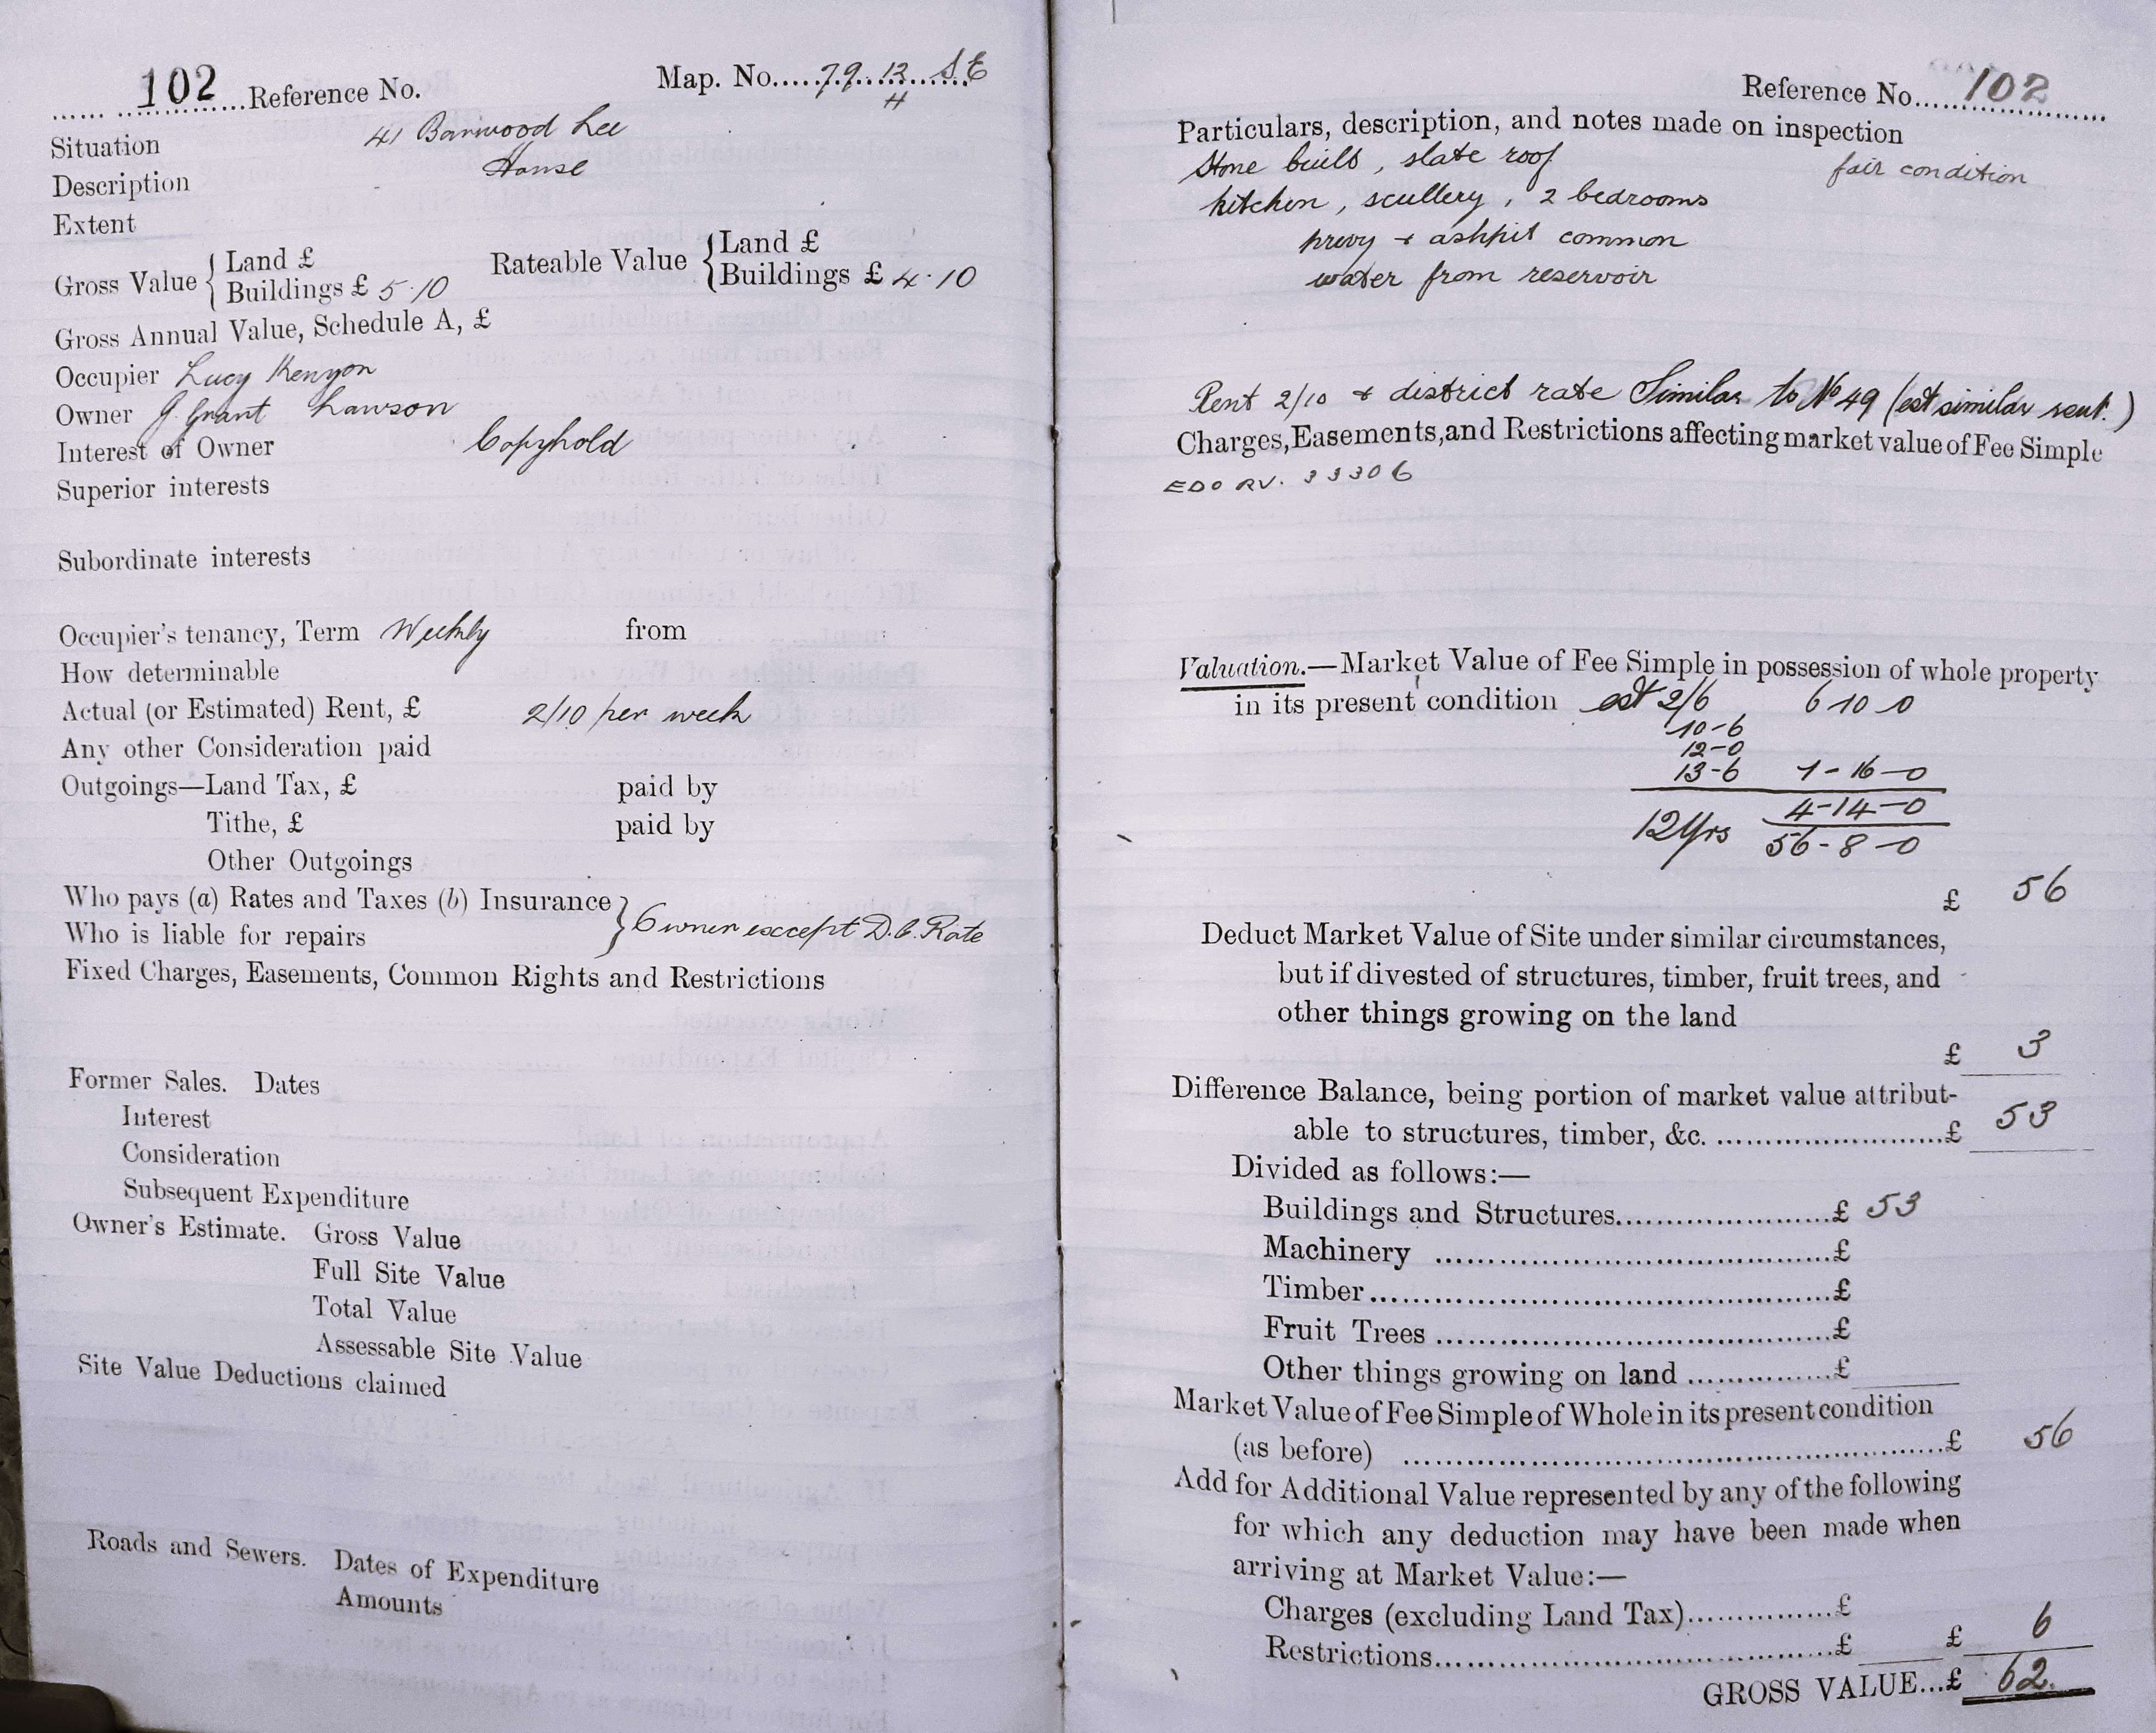 102 Reference No. Map. No. 79. 12 S.E
H
Situation 41 Barwood Lee
Description House
Extent
Gross Value { Land £ Rateable Value { Land £
Buildings £ 5.10 Buildings £ 4.10
Gross Annual Value, Schedule A, £
Occupier Lucy Kenyon
Owner J. Grant Lawson
Interest of Owner Copyhold
Superior interests
Subordinate interests
Occupier's tenancy, Term Weekly from
How determinable
Actual (or Estimated) Rent, £ 2/10 per week
Any other Consideration paid
Outgoings—Land Tax, £ paid by
Tithe, £ paid by
Other Outgoings
Who pays (a) Rates and Taxes (b) Insurance
Who is liable for repairs } Owner except D.C. Rate
Fixed Charges, Easements, Common Rights and Restrictions
Former Sales. Dates
Interest
Consideration
Subsequent Expenditure
Owner's Estimate. Gross Value
Full Site Value
Total Value
Assessable Site Value
Site Value Deductions claimed
Roads and Sewers. Dates of Expenditure
Amounts
Reference No. 102
Particulars, description, and notes made on inspection
Stone built, slate roof fair condition
kitchen, scullery, 2 bedrooms
privy + ashpit common
water from reservoir
Rent 2/10 + district rate Similar to No 49 (est similar rent.)
Charges, Easements, and Restrictions affecting market value of Fee Simple
EDO RV. 33306
Valuation.—Market Value of Fee Simple in possession of whole property
in its present condition est 2/6 6 10 0
10-6
12-0
13-6 1-16-0
4-14-0
12 Yrs 56-8-0
£ 56
Deduct Market Value of Site under similar circumstances,
but if divested of structures, timber, fruit trees, and
other things growing on the land
£ 3
Difference Balance, being portion of market value attribut-
able to structures, timber, &c. ........................£ 53
Divided as follows:—
Buildings and Structures......................£ 53
Machinery ........................................£
Timber..............................................£
Fruit Trees .......................................£
Other things growing on land ...............£
Market Value of Fee Simple of Whole in its present condition
(as before) .....................................................£ 56
Add for Additional Value represented by any of the following
for which any deduction may have been made when
arriving at Market Value:—
Charges (excluding Land Tax)...............£
Restrictions.......................................£ £ 6
GROSS VALUE...£ 62.